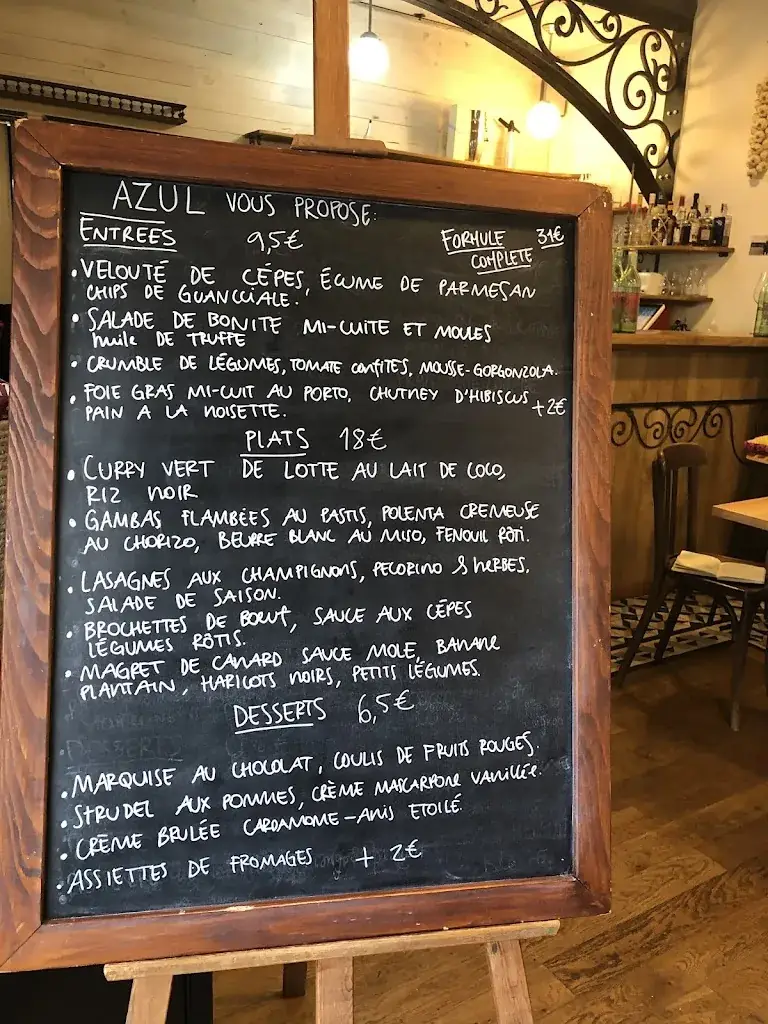 AZUL VOUS PROPOSE:
ENTREES 9,5€ FORMULE 31€
COMPLETE
• VELOUTÉ DE CÉPES, ÉCUME DE PARMESAN
CHIPS DE GUANCIALE.
• SALADE DE BONITE MI-CUITE ET MOULES
HUILE DE TRUFFE
• CRUMBLE DE LÉGUMES, TOMATE CONFITES, MOUSSE-GORGONZOLA.
• FOIE GRAS MI-CUIT AU PORTO, CHUTNEY D'HIBISCUS +2€
PAIN A LA NOISETTE.
PLATS 18€
• CURRY VERT DE LOTTE AU LAIT DE COCO,
RIZ NOIR
• GAMBAS FLAMBÉES AU PASTIS, POLENTA CREMEUSE
AU CHORIZO, BEURRE BLANC AU MISO, FENOUIL RÔTI.
• LASAGNES AUX CHAMPIGNONS, PECORINO & HERBES.
SALADE DE SAISON.
• BROCHETTES DE BOEUF, SAUCE AUX CÉPES
LÉGUMES RÔTIS.
• MAGRET DE CANARD SAUCE MOLE, BANANE
PLANTAIN, HARICOTS NOIRS, PETITS LÉGUMES.
DESSERTS 6,5€
• MARQUISE AU CHOCOLAT, COULIS DE FRUITS ROUGES.
• STRUDEL AUX POMMES, CRÈME MASCARPONE VANILLÉE.
• CRÈME BRULÉE CARDAMOME-ANIS ETOILÉ.
• ASSIETTES DE FROMAGES + 2€